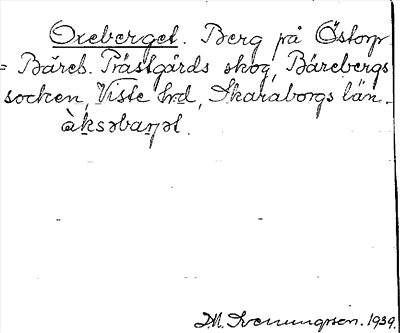 Oxeberget. Berg på Östorp
= Båreb. Prästgårds skog, Bårebergs
socken, Viste hrd, Skaraborgs län.
àksəbaŋət.
D. M. Svenungsson. 1939.